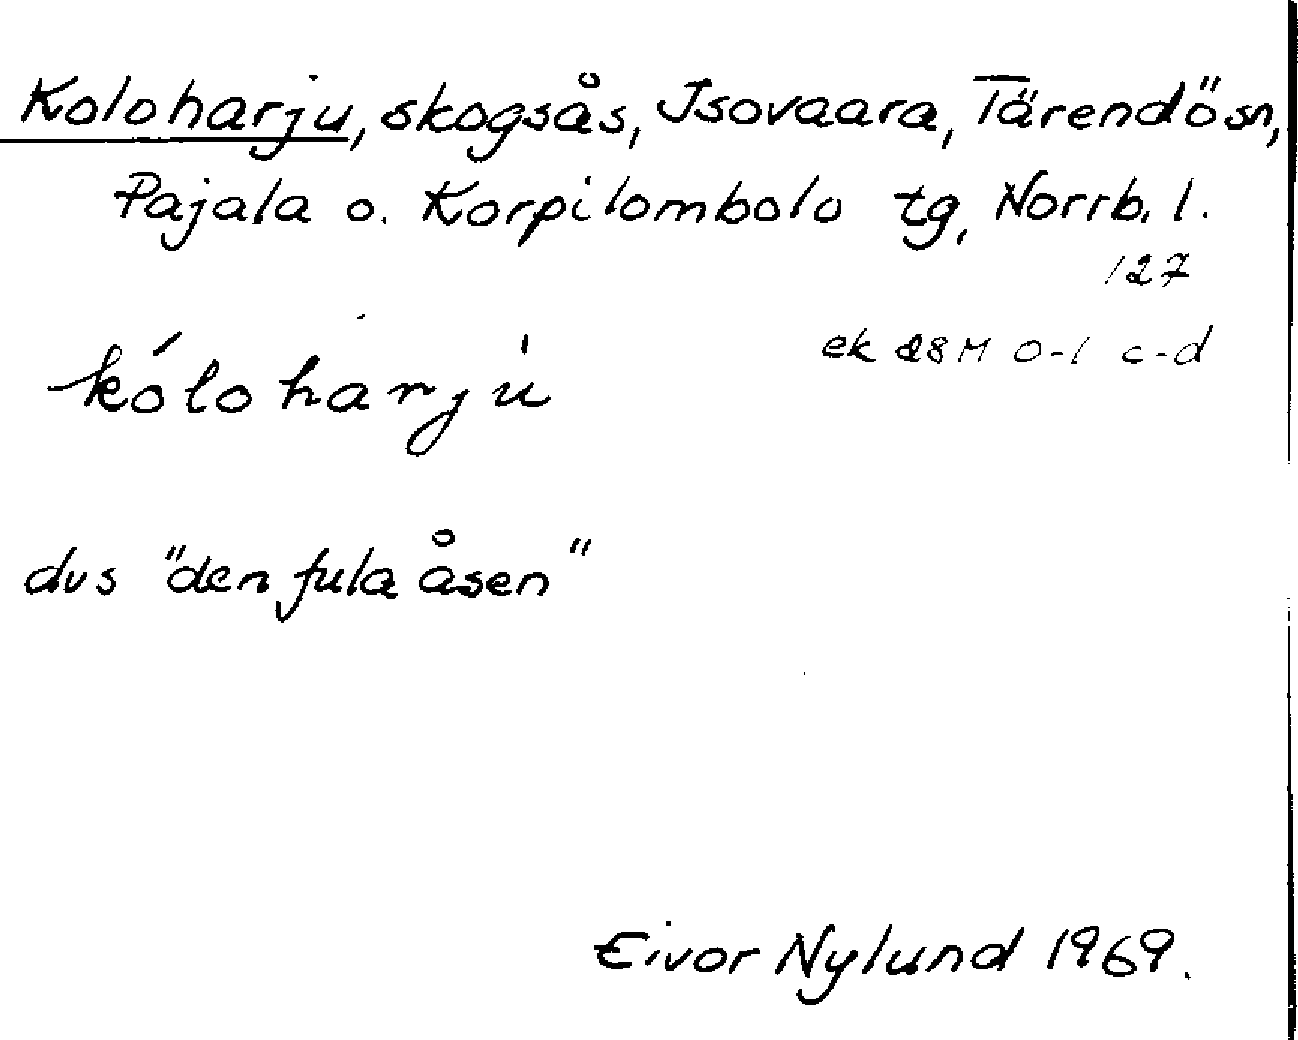 Koloharju, skogsås, Isovaara, Tärendö sn,
Pajala o. Korpilombolo tg, Norrb. l.
127
ek 28 M 0-1 c-d
kóloharju̍
dvs "den fula åsen"
Eivor Nylund 1969.